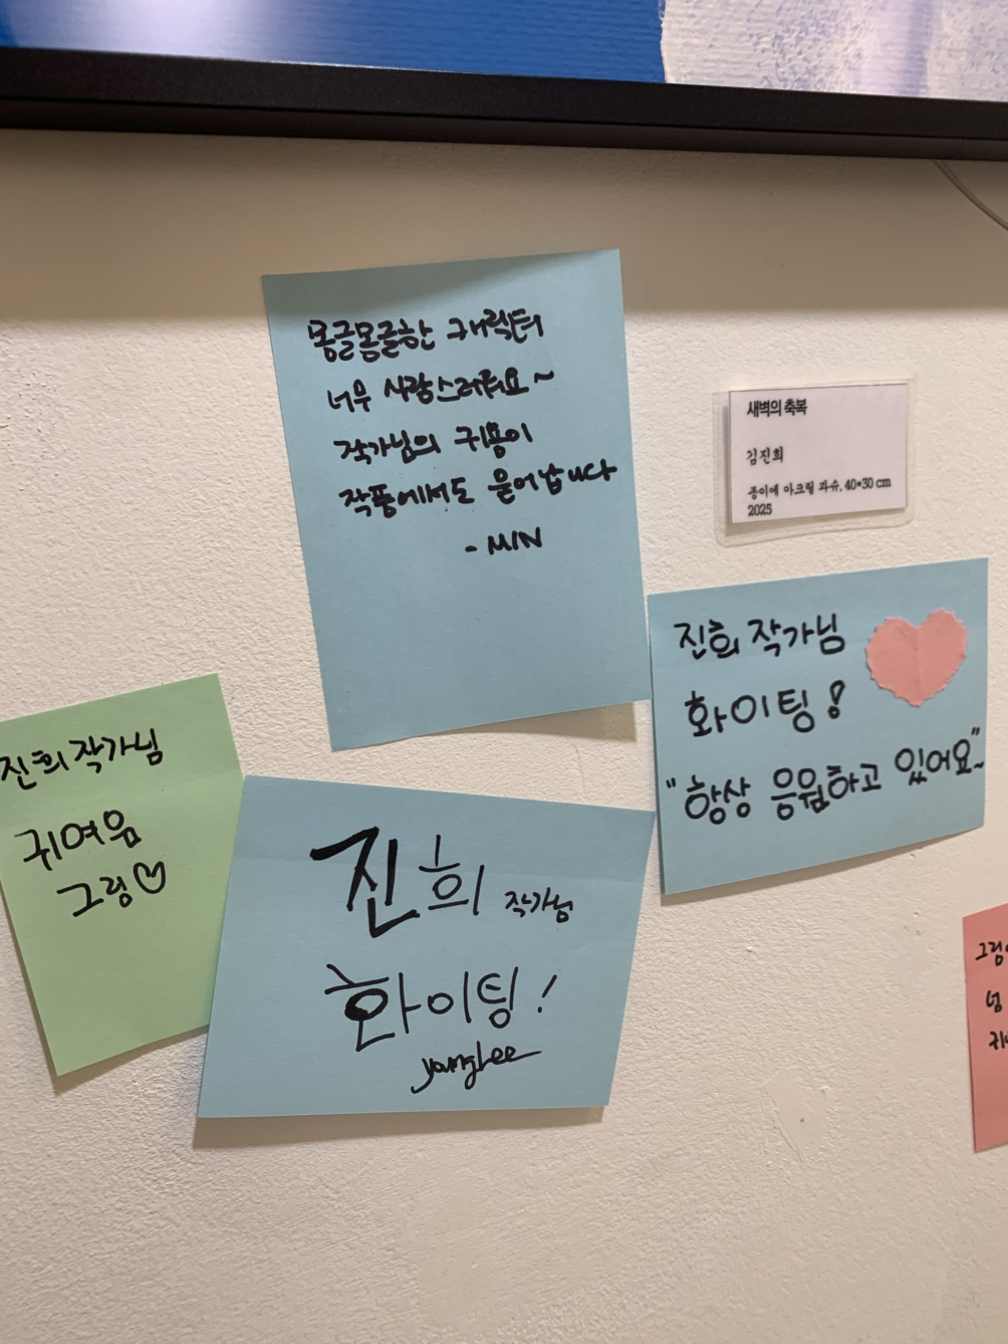 몽글몽글한 캐릭터
너무 사랑스러워요~
작가님의 귀욤이
작품에서도 묻어납니다
- MIN
새벽의 축복
김진희
종이에 아크릴 과슈, 40*30 cm
2025
진희 작가님
화이팅!
"항상 응원하고 있어요~"
진희 작가님
귀여움
그렁♡
진희 작가님
화이팅!
younghee
넘